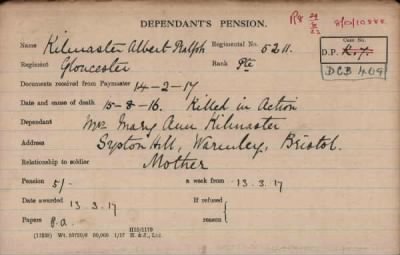 DEPENDANT'S PENSION.
8/0/10888
Case No.
Name Kilmaster Albert Ralph Regimental No. 5211.
D.P.
Regiment Gloucester Rank Pte
DCB 409
Documents received from Paymaster 14-2-17
Date and cause of death 15-8-16. Killed in Action
Dependant Mrs Mary Ann Kilmaster
Address Syston Hill, Warmley, Bristol.
Relationship to soldier Mother
Pension 5/- a week from 13.3.17
Date awarded 13.3.17 If refused
Papers reason
(13239) Wt. 53720/6 50,000 1/17 H. & J., Ltd.